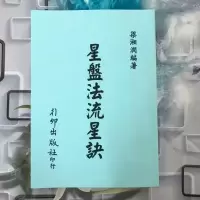 梁湘潤編著
星盤法流星訣
行卯出版社印行